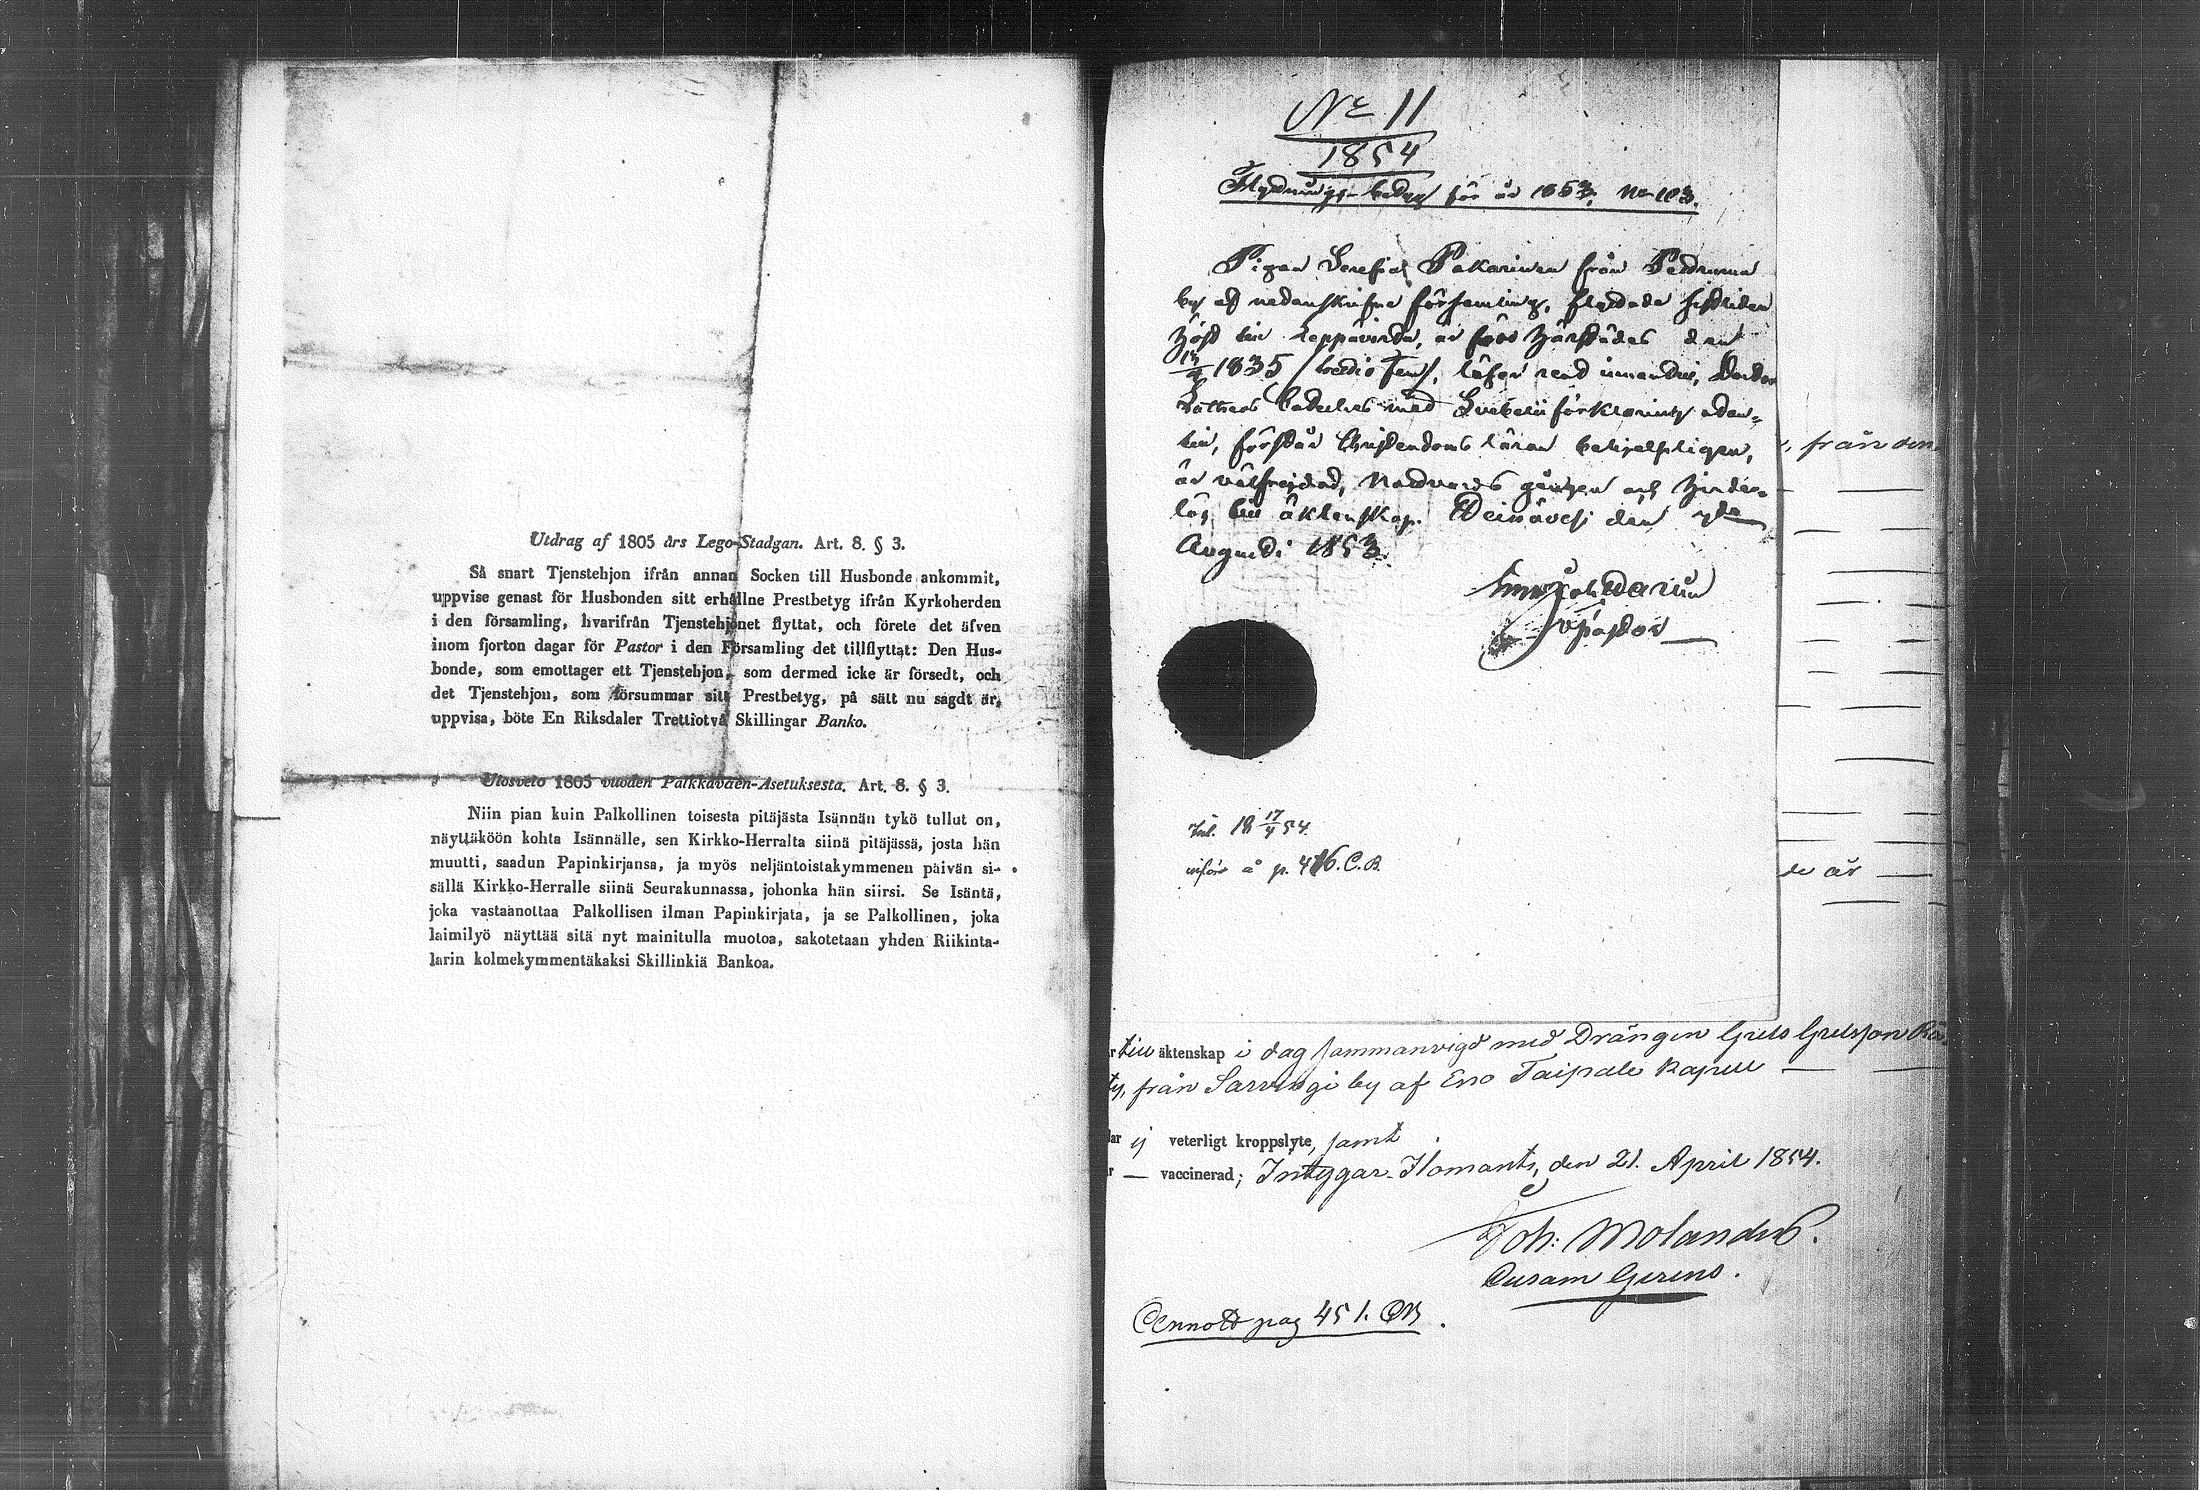 Utdrag af 1805 års Lego-Stadgan. Art. 8. § 3.
Så snart Tjenstehjon ifrån annan Socken till Husbonde ankommit,
uppvise genast för Husbonden sitt erhållne Prestbetyg ifrån Kyrkoherden
i den församling, hvarifrån Tjenstehjonet flyttat, och förete det äfven
inom fjorton dagar för Pastor i den Församling det tillflyttat: Den Hus-
bonde, som emottager ett Tjenstehjon, som dermed icke är försedt, och
det Tjenstehjon, som försummar sitt Prestbetyg, på sätt nu sagdt är,
uppvisa, böte En Riksdaler Trettiotvå Skillingar Banko.
Ulosveto 1805 vuoden Palkkaväen-Asetuksesta. Art. 8. § 3.
Niin pian kuin Palkollinen toisesta pitäjästa Isännän tykö tullut on,
näyttäköön kohta Isännälle, sen Kirkko-Herralta siinä pitäjässä, josta hän
muutti, saadun Papinkirjansa, ja myös neljäntoistakymmenen päivän si-
sällä Kirkko-Herralle siinä Seurakunnassa, johonka hän siirsi. Se Isäntä,
joka vastaanottaa Palkollisen ilman Papinkirjata, ja se Palkollinen, joka
laimilyö näyttää sitä nyt mainitulla muotoa, sakotetaan yhden Riikinta-
larin kolmekymmentäkaksi Skillinkiä Bankoa.
No 11
1854
Flyttnings-betyg för år 1853, No 103.
Pigan Pakarinen från
by af församling, flyttade
till Leppävirta, är född härstädes den
1835 läser rent innantill, Doctor
Luthers Cateches med förklaring utan-
till, förstår Christendoms läran behjelpligen,
är välfrejdad, Nattvards gången och hinder-
lös till äktenskap. Heinävesi den 7de
Augusti 1853.
v Pastor
Inl. 18 17/4 54.
införd å p. 416. C.B.
från den
de år
till äktenskap i dag sammanvigd med Drängen Grels Grelsson
från by af Eno Taipale kapell
ej veterligt kroppslyte, samt
— vaccinerad; Intygar. Ilomants, den 21. April 1854.
Joh: Molander.
Curam Gerens.
Annott pag 451. CB.